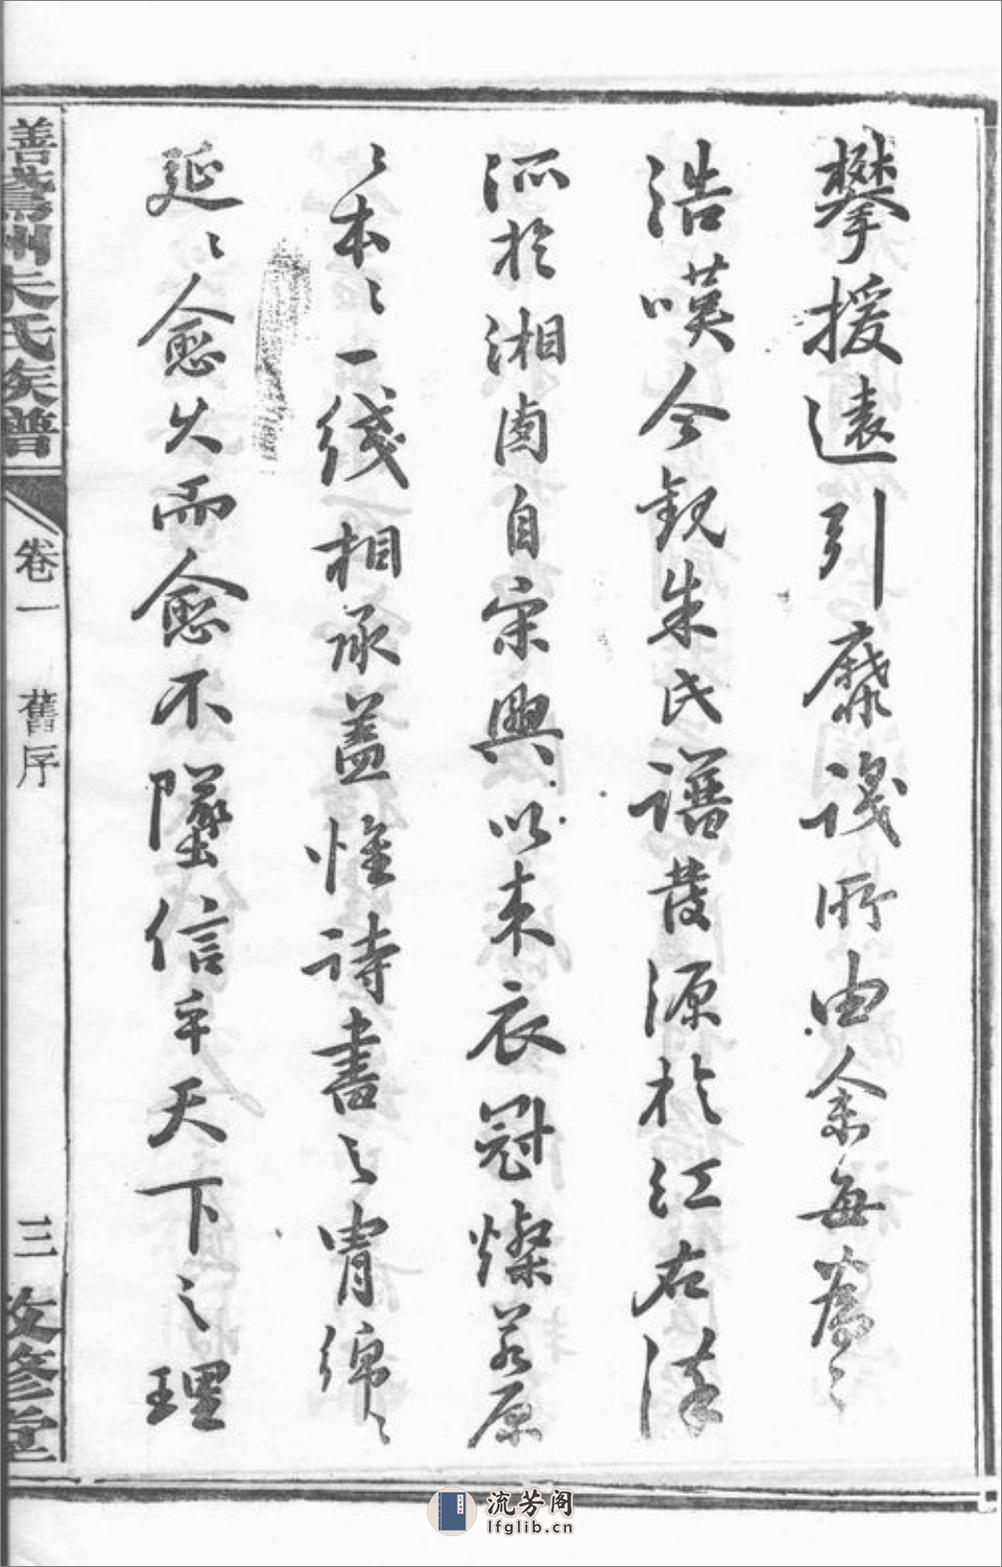 攀援遠引釐譏所由余每為之
浩嘆今觀朱氏譜發源於江右深
派於湘南自宋興以来衣冠燦若原
〻本〻一綫相承蓋惟詩書之胄綿〻
延〻愈久而愈不墜信乎天下之理
善鷥洲朱氏族譜
卷一
舊序
三
敦修堂
流芳阁
lfglib.cn